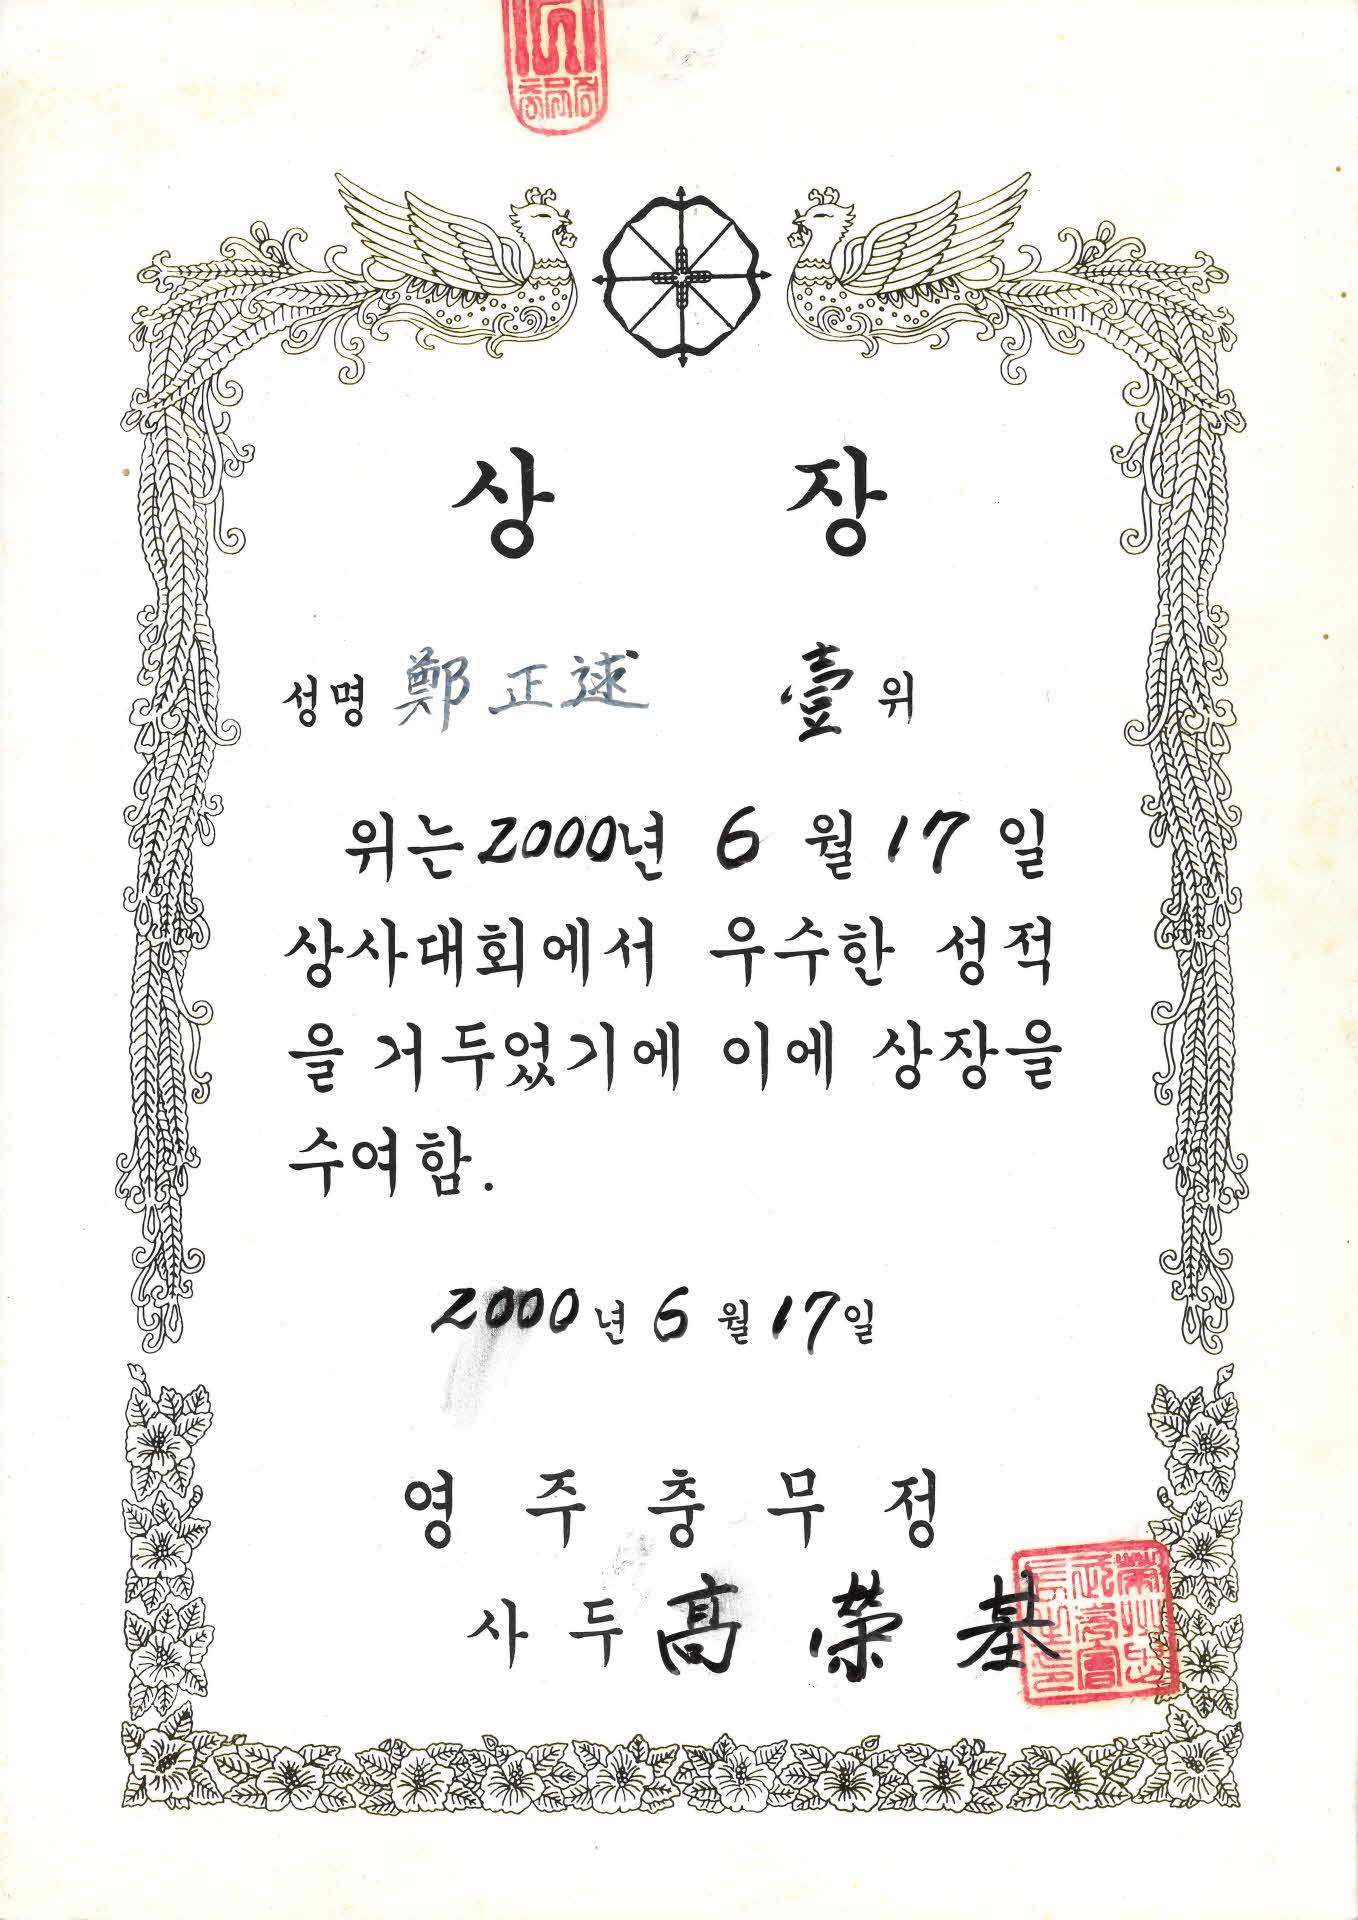 상 장
성명 鄭正逑 壹 위
위는 2000년 6 월 17 일
상사대회에서 우수한 성적
을 거두었기에 이에 상장을
수여함.
2000 년 6 월 17 일
영 주 충 무 정
사 두 高 榮 基